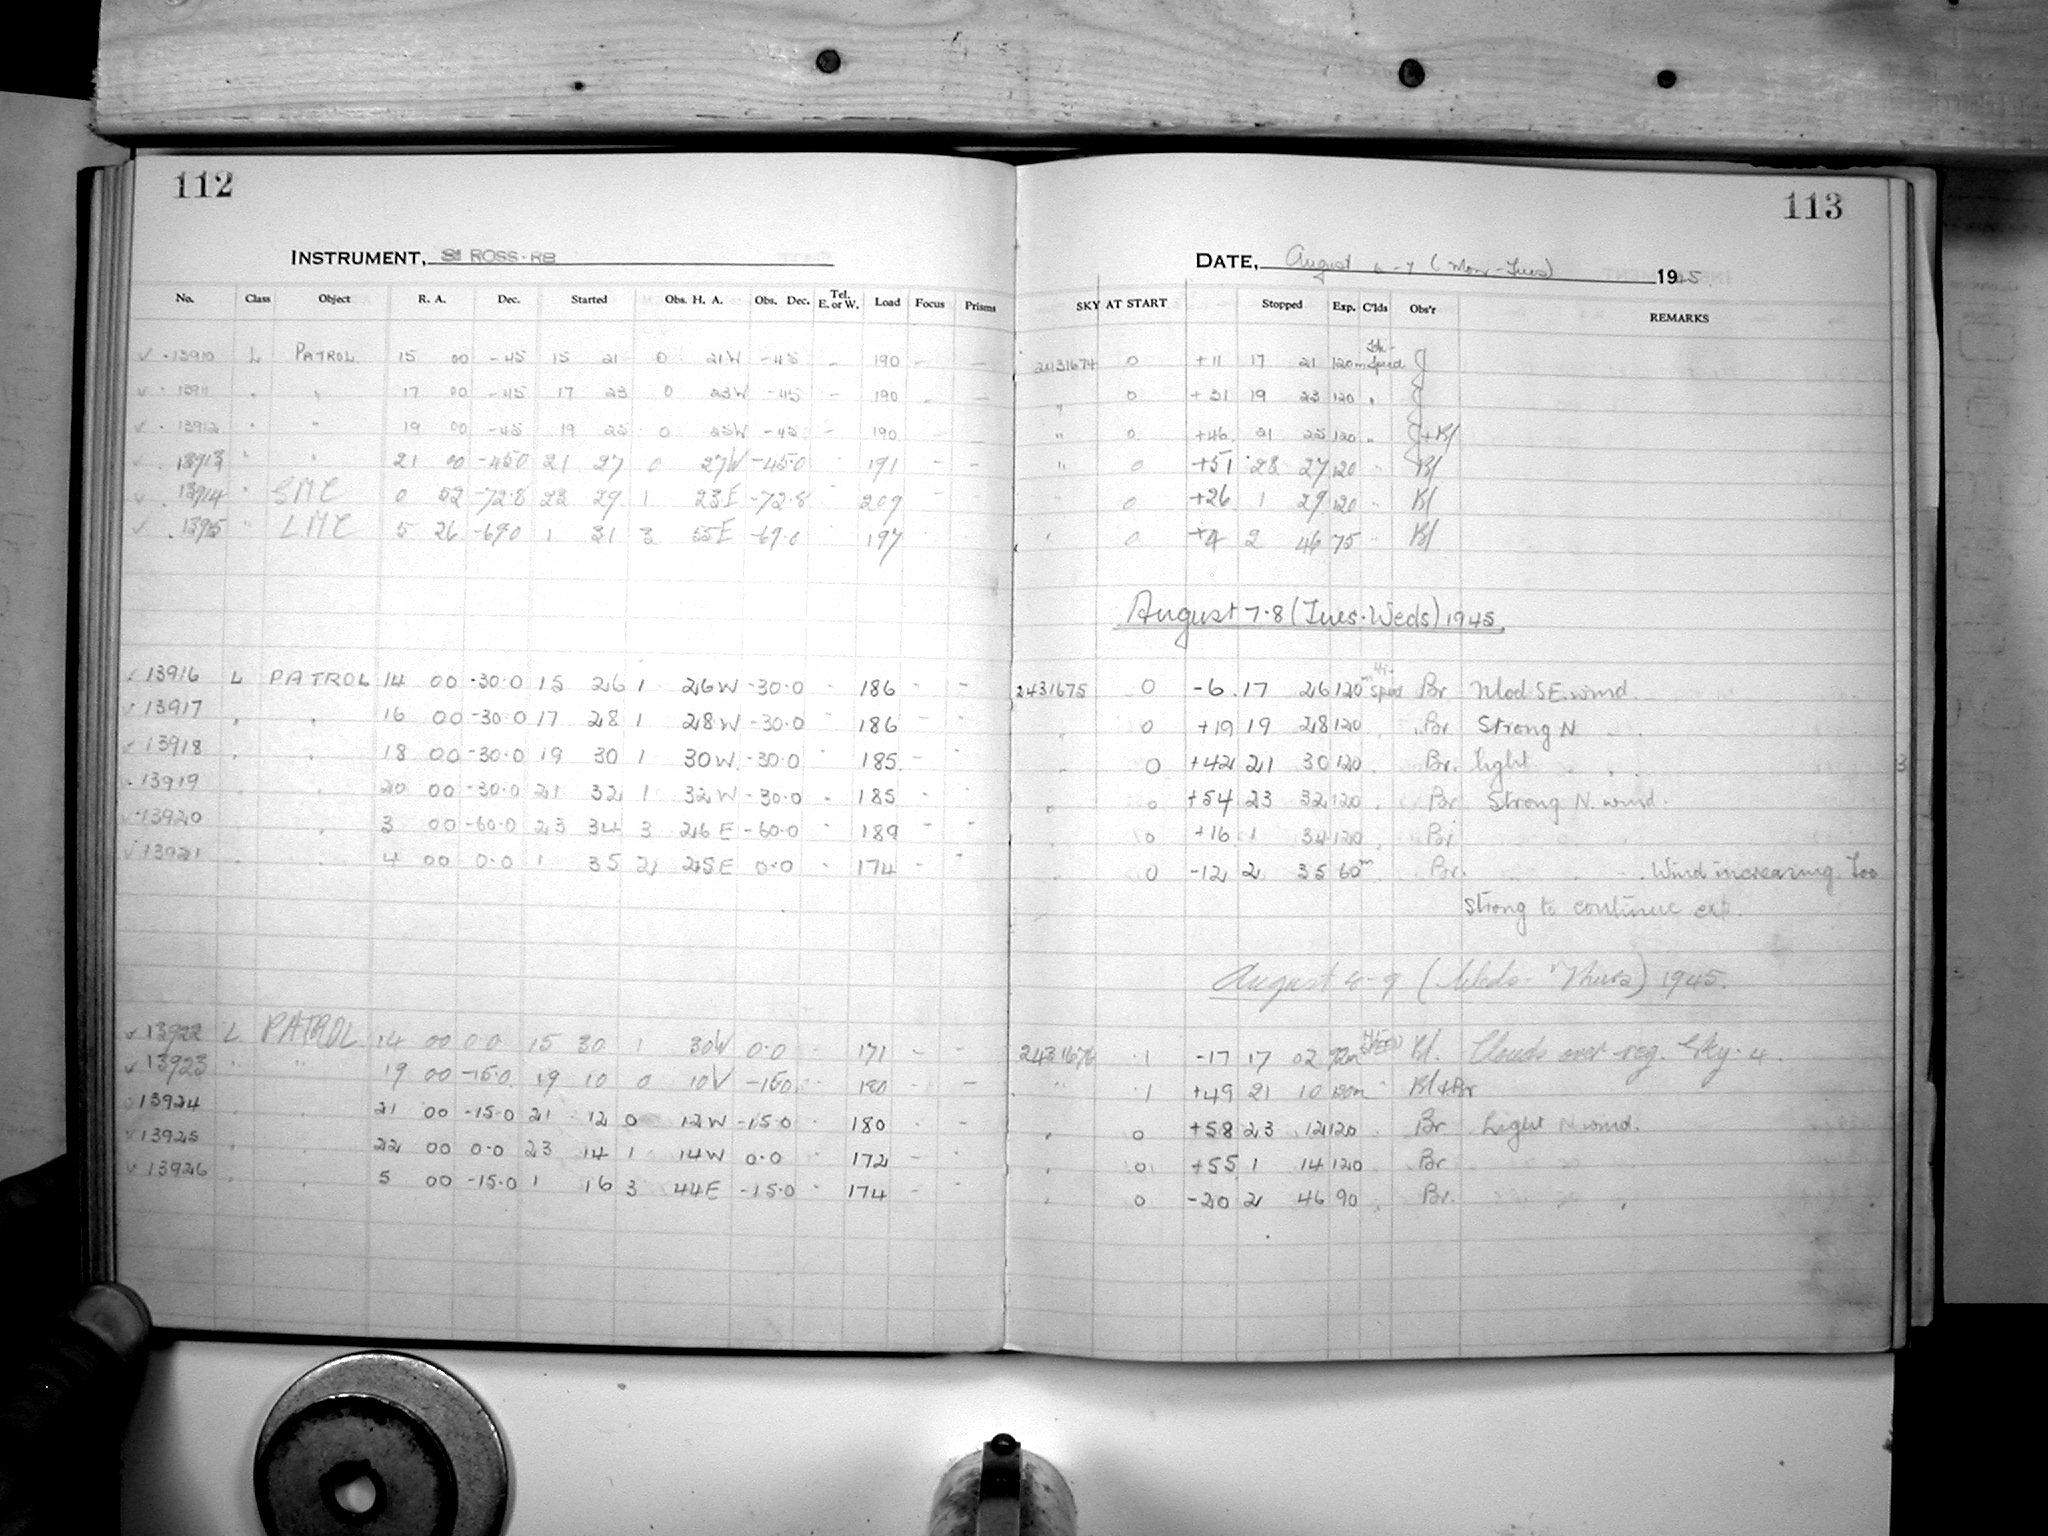 112
113
INSTRUMENT, ROSS-RB
DATE, August 6-7 (Mon-Tues) 1945
No. Class Object R. A. Dec. Started Obs. H. A. Obs. Dec. Tel. E. or W. Load Focus Prisms SKY AT START Stopped Exp. C'lds Obs'r REMARKS
13910 L PATROL 15 00 -45 15 21 0 21W -45 - 190 - - 2431674 0 +11 17 21 120m Speed
13911 " " 17 00 -45 17 23 0 23W -45 - 190 - - " 0 +31 19 23 120 "
13912 " " 19 00 -45 19 25 0 25W -45 - 190 - - " 0 +46 21 25 120 " +Bl
13913 " " 21 00 -45.0 21 27 0 27W -45.0 " 191 - - " 0 +51 23 27 120 " Bl
13914 " SMC 0 52 -72.8 23 29 1 23E -72.8 " 207 - " 0 +26 1 29 120 " Bl
13915 " LMC 5 26 -69.0 1 31 3 55E -69.0 " 197 " 0 +4 2 46 75 " Bl
August 7-8 (Tues-Weds) 1945
13916 L PATROL 14 00 -30.0 15 26 1 26W -30.0 - 186 - - 2431675 0 -6 17 26 120m Hi-Speed Br Mod SE. wind.
13917 " " 16 00 -30.0 17 28 1 28W -30.0 " 186 - " " 0 +19 19 28 120 " Br Strong N " "
13918 " " 18 00 -30.0 19 30 1 30W -30.0 " 185 - " " 0 +42 21 30 120 " Br. light " "
13919 " " 20 00 -30.0 21 32 1 32W -30.0 " 185 - " " 0 +54 23 32 120 " Br Strong N. wind.
13920 " " 3 00 -60.0 23 34 3 26E -60.0 " 189 - " " 0 +16 1 34 120 " Br
13921 " " 4 00 0.0 1 35 2 45E 0.0 " 174 - " " 0 -12 2 35 60m " Br. " " " Wind increasing. Too
strong to continue exp.
August 8-9 (Weds-Thurs) 1945.
13922 L PATROL 14 00 0.0 15 30 1 30W 0.0 - 171 - - 2431676 1 -17 17 02 92m Bl. Clouds over reg. Sky. 4
13923 " " 19 00 -15.0 19 10 0 10W -15.0 " 180 - - " 1 +49 21 10 120m " Bl & Br
13924 " " 21 00 -15.0 21 12 0 12W -15.0 " 180 - - " 0 +58 23 12 120 " Br Light N wind.
13925 " " 22 00 0.0 23 14 1 14W 0.0 " 172 - " " 0 +55 1 14 120 " Br
13926 " " 5 00 -15.0 1 16 3 44E -15.0 " 174 - " " 0 -20 2 46 90 " Br. " "